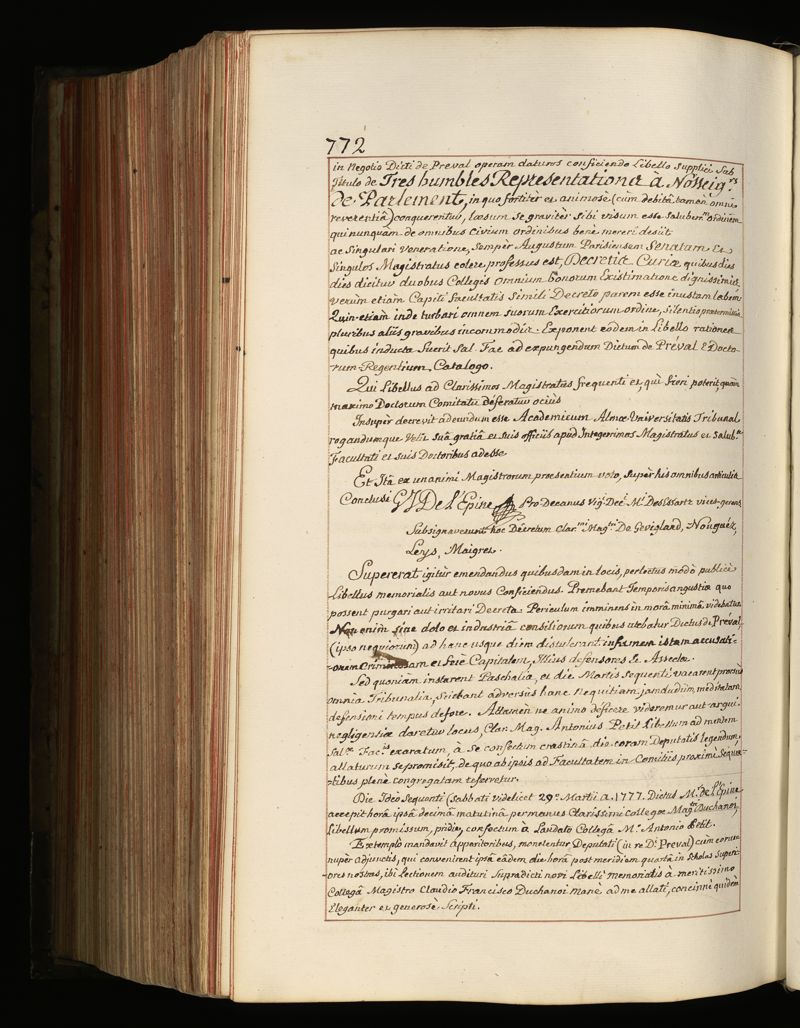 772
in Negotio Dicti de Preval operam daturos conficiendo Libello supplici sub
Titulo de Tres humbles Representations à Nosseig.rs
de Parlement, in quo fortitèr et animosè (cùm debitâ tamen omni
reverentiâ) conquerentur, læsum se gravitèr sibi visum esse saluberr.m ordinem
qui nunquàm de omnibus civium ordinibus benè mereri desiit
ac Singulari Veneratione, Semper Augustum Parisiensem Senatum Et
Singulos Magistratus colere professus est, Decretis Curiæ quibus dies
dies dicitur duobus Collegis omnium bonorum Existimatione dignissimis
verùm etiam Capiti Facultatis Simili Decreto, parem esse inustam labem
Quin-etiam inde turbari omnem suorum Exercitiorum ordine, silentio prætermissis
pluribus aliis gravibus incommodis. Exponent eòdem in Libello rationes
quibus inducta fuerit Sal. Fac ad expungendum Dictum de Préval è Docto-
rum-Regentium Catalogo.
Qui Libellus ad Clarissimos Magistratus frequenti et, qui fieri poterit, quàm
maximo Doctorum Comitatu deferatur ociùs
Insuper decrevit adeundum esse Academicum Almæ Universitatis Tribunal
rogandumque velit suâ gratiâ et suis officiis apud Integerrimos Magistratus et Salub.ae
Facultati et suis Doctoribus adesse
Et Ità ex unanimi Magistrorum præsentium voto, super his omnibus articulis
Conclusi G J De l'Epine Pro Decanus Vig. Dec. M. Dessessartz vices-gerens
Subsignaverunt hoc Decretum Clar.mi Mag.tri De Gevigland, Nouguéz,
Leys, Maigret.
Supererat igitur emendandus quibusdam in locis, perlectus mòdò publicè
Libellus memorialis aut novus Conficiendus. Premebant Temporis angustiæ quo
possent purgari aut irritari Decreta. Periculum imminens in morâ minimâ videbatur
Non enim sine dolo et industriâ consiliorum quibus utebatur Dictus de Préval
(ipso nequiorum) ad hanc usque diem distulerant infamem istam accusati-
-onem Criminosam et ferè Capitalem, Illius defensores Se Assecla.
Sed quoniàm instarent Paschalia, et die Martis Sequenti vacarent prorsùs
omnia Tribunalia, Sciebant adversùs hanc nequitiam, jamdudùm meditatam
defensioni tempus defore. Attamen ne animo deficere videremur aut argui
negligentiæ daretur locus, Clar. Mag. Antonius Petit Libellum ad mentem
Sal.ae Fac.is exaratum, à se confectum crastinâ die coram Deputatis legendum
allaturum se promisit, de quo ab ipsis ad Facultatem in Comitiis proximè Sequen-
-tibus plenè congregatam referretur.
Die Ideò Sequenti (Sabbati videlicet 29.a Martii a. 1777. Dictus M. de l'Epine
accepit horâ ipsâ decimâ matutinâ per manus Clarissimi collegæ Mag.tri Duchanoi,
libellum promissum, pridiè confectum à Laudato Collega M.o Antonio Petit.
Extemplo mandavit apparitoribus, monerentur Deputati (in re D.i Preval) cùm eorum
nupèr adjunctis, qui convenirent ipsâ eâdem die horâ post meridiem quartâ in scholas Superi-
-ores nostras, ibi Lectionem audituri Supradicti novi Libelli memorialis à meritissimo
Collegâ Magistro Claudio Francisco Duchanoi manè ad me allati, concinnè quidem
Eleganter et generosè Scripti.